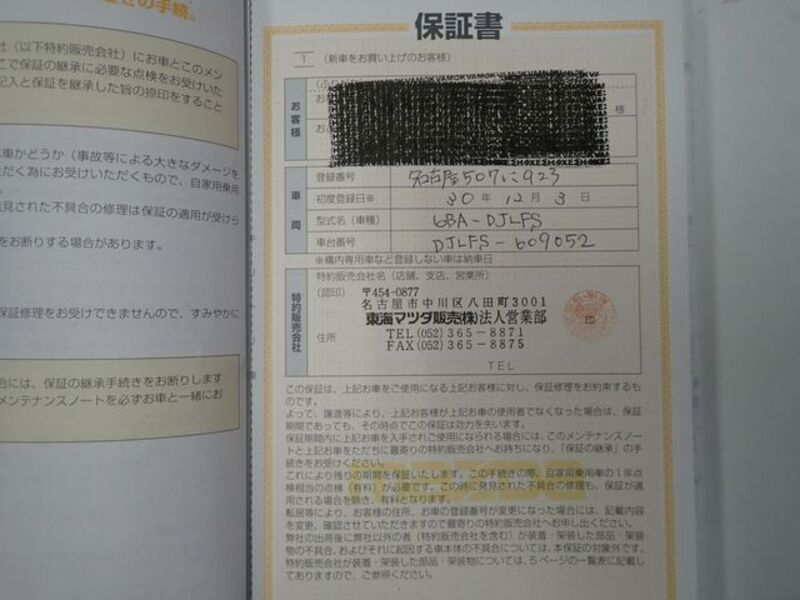 きの手続。
社（以下特約販売会社）にお車とこのメン
こで保証の継承に必要な点検をお受けいた
記入と保証を継承した旨の捺印をすること
車かどうか（事故等による大きなダメージを
ただく為にお受けいただくもので、自家用乗用
発見された不具合の修理は保証の適用が受けら
をお断りする場合があります。
保証修理をお受けできませんので、すみやかに
合には、保証の継承手続きをお断りします
メンテナンスノートを必ずお車と一緒にお
保証書
1 （新車をお買い上げのお客様）
お客様
様
車両
登録番号 名古屋507に923
初度登録日※ 30年12月3日
型式名（車種） 6BA-DJLFS
車台番号 DJLFS-609052
※構内専用車など登録しない車は納車日
特約販売会社
特約販売会社名（店舗、支店、営業所）
（認印） 〒454-0877
名古屋市中川区八田町3001
東海マツダ販売(株)法人営業部
印
住所 TEL(052)365-8871
FAX(052)365-8875
TEL
この保証は、上記お車をご使用になる上記お客様に対し、保証修理をお約束するも
のです。
よって、譲渡等により、上記お客様が上記お車の使用者でなくなった場合は、保証
期間であっても、その時点でこの保証は効力を失います。
保証期間内に上記お車を入手されご使用になられる場合には、このメンテナンスノー
トと上記お車をただちに最寄りの特約販売会社へお持ちになり、「保証の継承」の手
続きをお受けください。
これにより残りの期間を保証いたします。この手続きの際、自家用乗用車の1年点
検相当の点検（有料）が必要です。この時に発見された不具合の修理も、保証が適
用される場合を除き、有料となります。
転居等により、お客様の住所、お車の登録番号が変更になった場合には、記載内容
を変更、確認させていただきますので最寄りの特約販売会社へお申し出ください。
弊社の出荷後に弊社以外の者（特約販売会社を含む）が装着・架装した部品・架装
物の不具合、およびそれに起因する車本体の不具合については、本保証の対象外です。
特約販売会社が装着・架装した部品・架装物については、5ページの一覧表に記載し
てありますので、ご参照ください。